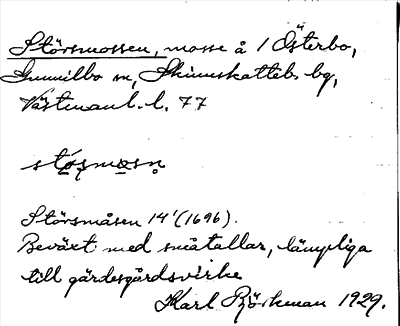 Störsmossen, mosse å 1 Österbo,
Gunnilbo sn, Skinnskattebs bg,
Västmanl. l. 77
stö́ṣmo̱sn̥
Störsmåsen 14' (1696).
Beväxt med småtallar, lämpliga
till gärdesgårdsvirke
Karl Björkman 1929.